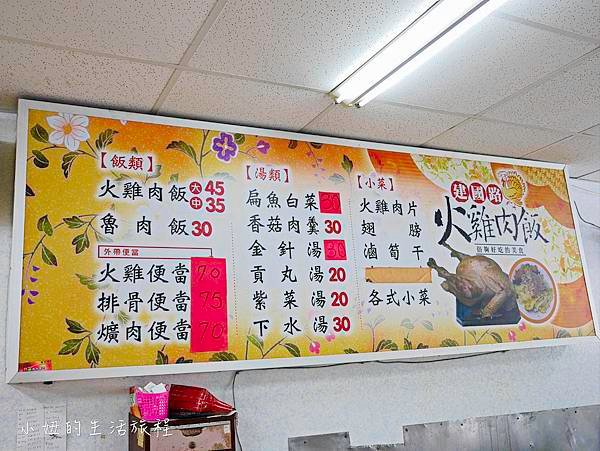 【飯類】
火雞肉飯 大 45
中 35
魯肉飯 30
外帶便當
火雞便當 70
排骨便當 75
爌肉便當 70
【湯類】
扁魚白菜
香菇肉羹 30
金針湯
貢丸湯 20
紫菜湯 20
下水湯 30
【小菜】
火雞肉片
翅膀
滷筍干
各式小菜
建國路
火雞肉飯
小妞的生活旅程